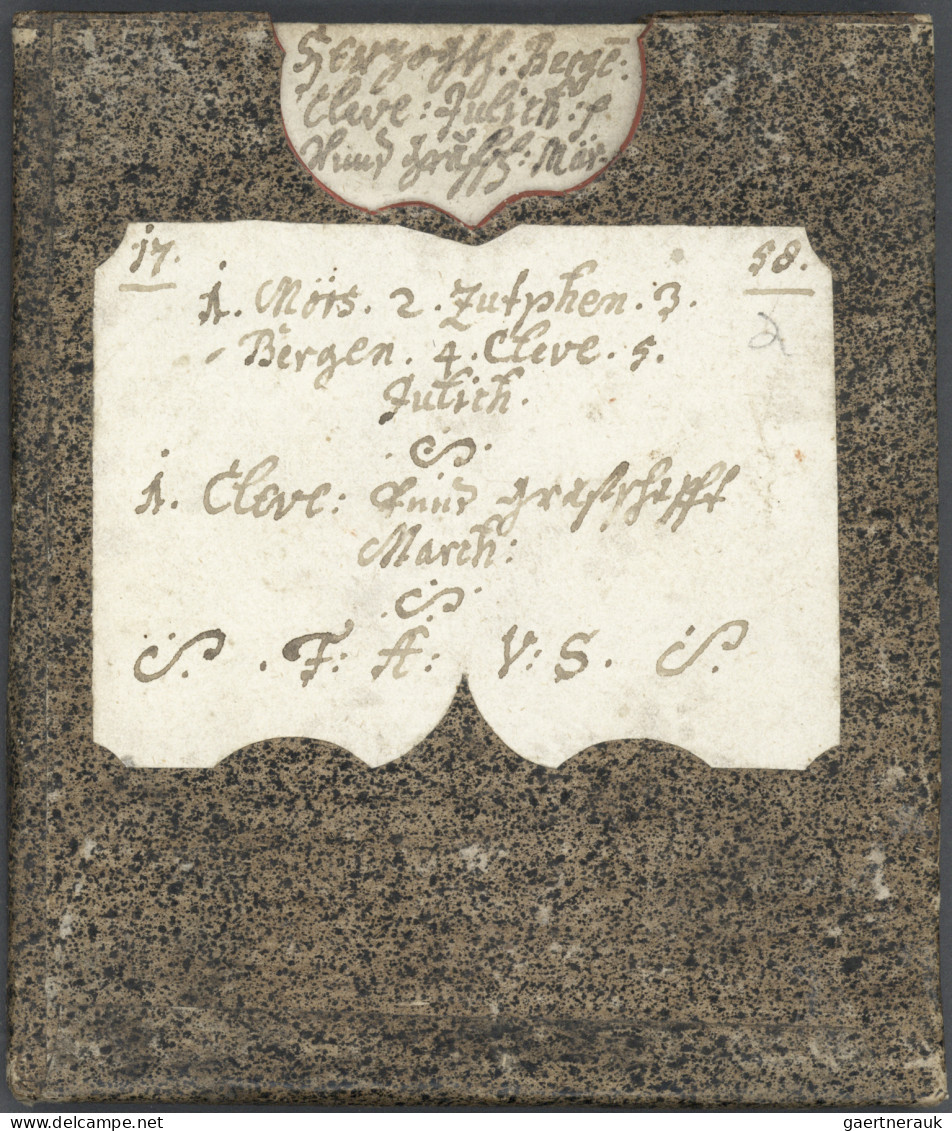 Hertzogth: Berge.
Cleve: Julich: p.
Vnnd Graffsch: Mör.
17. 58.
1. Mörs. 2. Zutphen. 3.
Bergen. 4. Cleve. 5.
Julich.
1. Cleve: Vnnd Grafschafft
March:
S. F: A: V: S. S.
delcampe.net
gaertnerauk